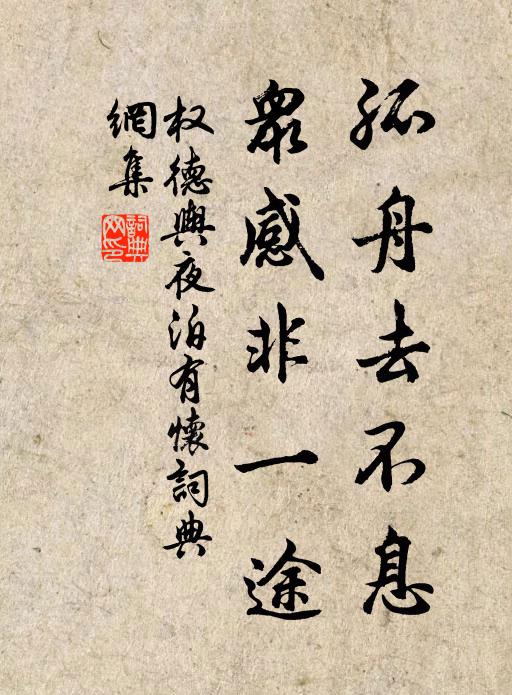 孤舟去不息
衆感非一途
权德輿夜泊有懷詞典
網集
詞典网印